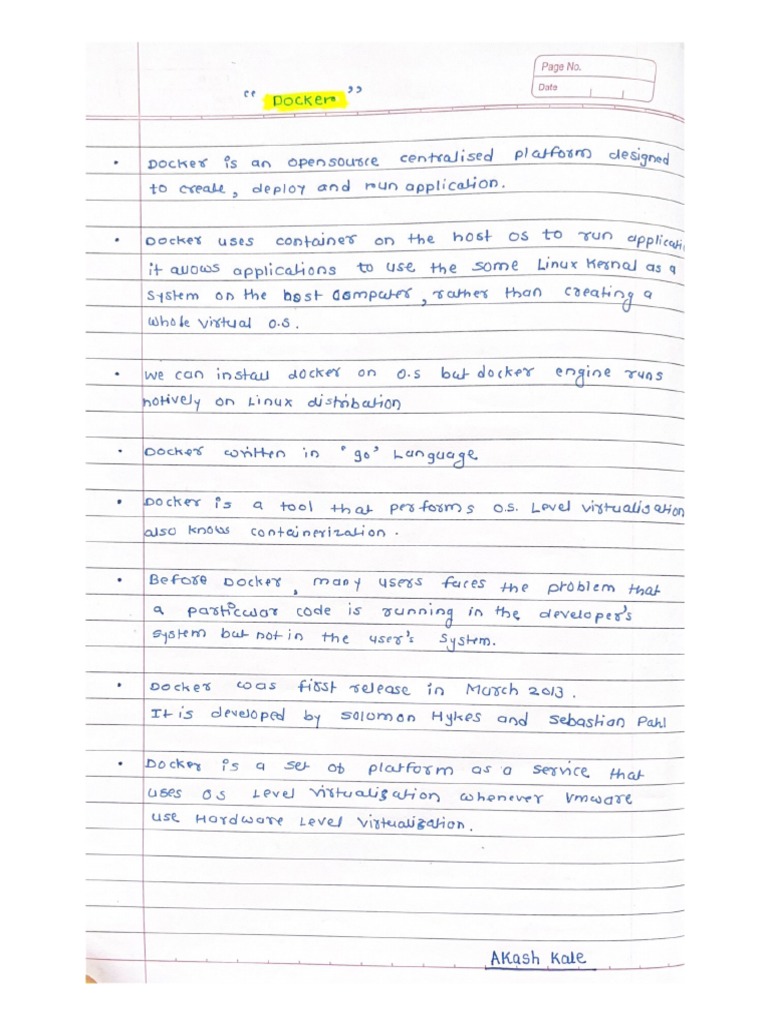 Page No.
Date
" Docker "
• Docker is an opensource centralised platform designed
to create, deploy and run application.
• Docker uses container on the host os to run applicati
it allows applications to use the some Linux Kernal as a
System on the host Computer, rather than creating a
Whole virtual o.s.
• We can install docker on o.s but docker engine runs
notively on Linux distribation
• Docker written in 'go' Language
• Docker is a tool that performs o.s. Level virtualisation
also knows containerization.
• Before Docker, many users faces the problem that
a particular code is running in the developer's
System but not in the user's System.
• Docker was first release in March 2013.
It is developed by Solomon Hykes and Sebastian Pahl
• Docker is a set of platform as a service that
uses os Level virtualization whenever Vmware
use Hardware Level Virtualization.
Akash Kale